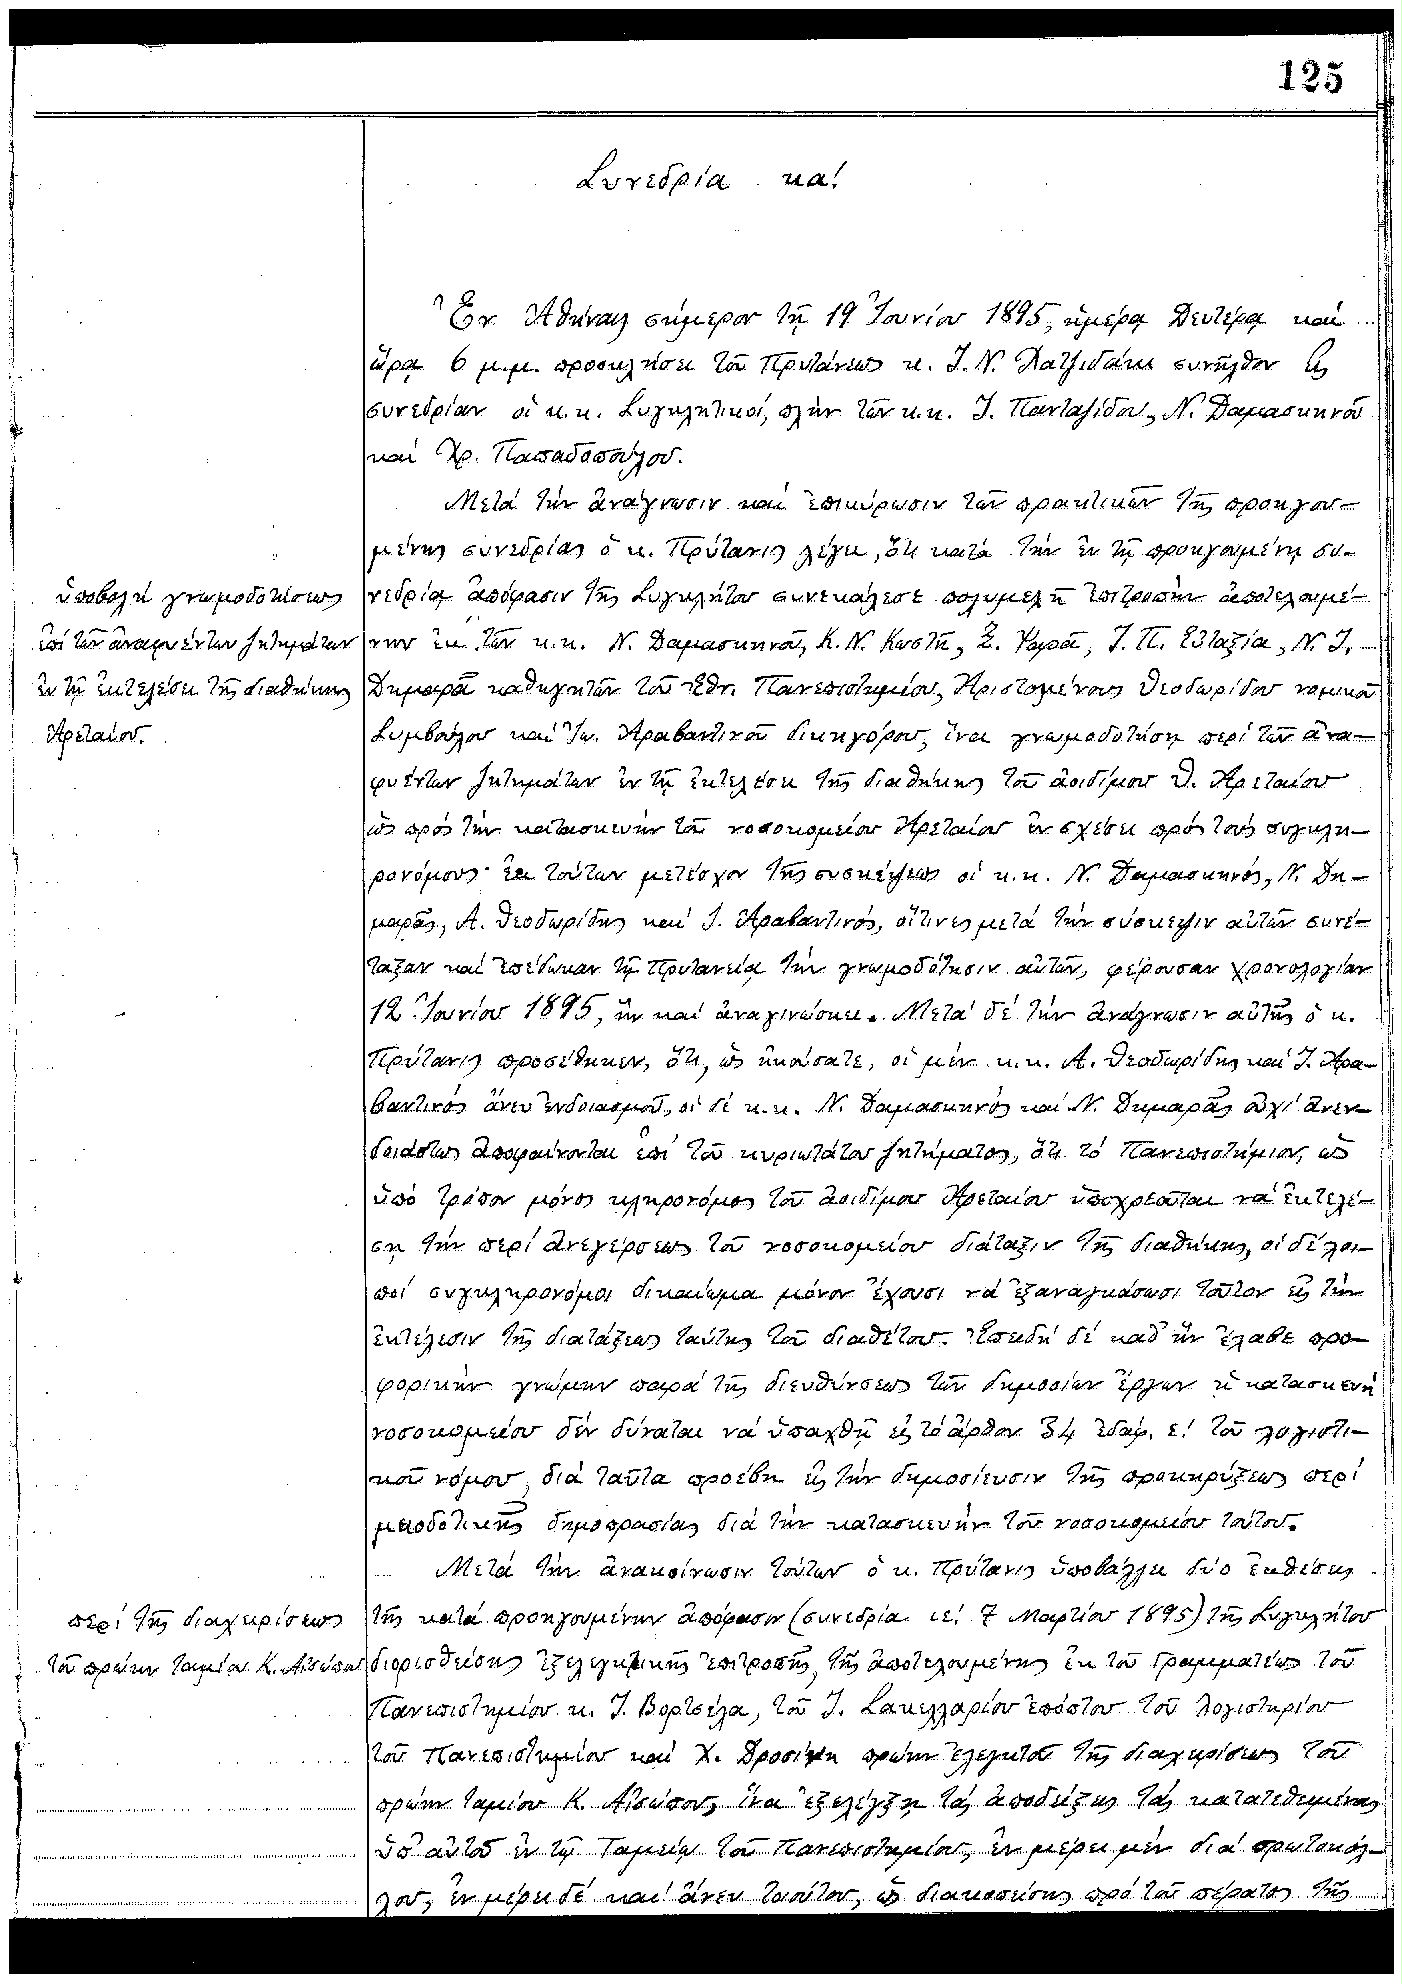 125
Συνεδρία κα!
Ἐν Ἀθήναις σήμερον τῇ 19 Ἰουνίου 1895, ἡμέρᾳ Δευτέρᾳ καί
ὥρᾳ 6 μ.μ. προσκλήσει τοῦ Πρυτάνεως κ. Γ. Ν. Χατζιδάκι συνῆλθον εἰς
συνεδρίαν οἱ κ.κ. Συγκλητικοί, πλήν τῶν κ.κ. Ι. Πανταζίδου, Ν. Δαμασκηνοῦ
καί Χρ. Παπαδοπούλου.
Μετά τήν ἀνάγνωσιν καί ἐπικύρωσιν τῶν πρακτικῶν τῆς προηγου-
μένης συνεδρίας ὁ κ. Πρύτανις λέγει, ὅτι κατά τήν ἐν τῇ προηγουμένῃ συ-
ὑποβολή γνωμοδοτήσεως
ἐπί τῶν ἀναφυέντων ζητημάτων
ἐν τῇ ἐκτελέσει τῆς διαθήκης
Ἀρεταίου.
νεδρίᾳ ἀπόφασιν τῆς Συγκλήτου συνεκάλεσε πολυμελῆ ἐπιτροπήν ἀποτελουμέ-
νην ἐκ τῶν κ.κ. Ν. Δαμασκηνοῦ, Κ. Ν. Κωστῆ, Σ. Ψαρᾶ, Ι. Π. Εὐταξία, Ν. Ι.
Δημαρᾶ καθηγητῶν τοῦ Ἐθν. Πανεπιστημίου, Ἀριστομένους Θεοδωρίδου νομικοῦ
Συμβούλου καί Ἰω. Ἀραβαντινοῦ δικηγόρου, ἵνα γνωμοδοτήσῃ περί τῶν ἀνα-
φυέντων ζητημάτων ἐν τῇ ἐκτελέσει τῆς διαθήκης τοῦ ἀοιδίμου Θ. Ἀρεταίου
ὡς πρός τήν κατασκευήν τοῦ νοσοκομείου Ἀρεταίου ἐν σχέσει πρός τούς συγκλη-
ρονόμους· ἐκ τούτων μετέσχον τῆς συσκέψεως οἱ κ.κ. Ν. Δαμασκηνός, Ν. Δη-
μαρᾶς, Α. Θεοδωρίδης καί Ι. Ἀραβαντινός, οἵτινες μετά τήν σύσκεψιν αὐτῶν συνέ-
ταξαν καί ἐπέδωκαν τῇ Πρυτανείᾳ τήν γνωμοδότησιν αὐτῶν, φέρουσαν χρονολογίαν
12 Ἰουνίου 1895, ἥν καί ἀναγινώσκει. Μετά δέ τήν ἀνάγνωσιν αὐτῆς ὁ κ.
Πρύτανις προσέθηκεν, ὅτι, ὡς ἠκούσατε, οἱ μέν κ.κ. Α. Θεοδωρίδης καί Ι. Ἀρα-
βαντινός ἄνευ ἐνδοιασμοῦ, οἱ δέ κ.κ. Ν. Δαμασκηνός καί Ν. Δημαρᾶς οὐχί ἀνεν-
δοιάστως ἀποφαίνονται ἐπί τοῦ κυριωτάτου ζητήματος, ὅτι τό Πανεπιστήμιον, ὡς
ὑπό τρόπον μόνος κληρονόμος τοῦ ἀοιδίμου Ἀρεταίου ὑποχρεοῦται νά ἐκτελέ-
σῃ τήν περί ἀνεγέρσεως τοῦ νοσοκομείου διάταξιν τῆς διαθήκης, οἱ δέ λοι-
ποί συγκληρονόμοι δικαίωμα μόνον ἔχουσι νά ἐξαναγκάσωσι τοῦτον εἰς τήν
ἐκτέλεσιν τῆς διατάξεως ταύτης τοῦ διαθέτου. Ἐπειδή δέ καθ' ἥν ἔλαβε προ-
φορικήν γνώμην παρά τῆς διευθύνσεως τῶν δημοσίων ἔργων ἡ κατασκευή
νοσοκομείου δέν δύναται νά ὑπαχθῇ εἰς τό ἄρθρον 34 ἐδάφ. ε! τοῦ λογιστι-
κοῦ νόμου, διά ταῦτα προέβη εἰς τήν δημοσίευσιν τῆς προκηρύξεως περί
μειοδοτικῆς δημοπρασίας διά τήν κατασκευήν τοῦ νοσοκομείου τούτου.
Μετά τήν ἀνακοίνωσιν τούτων ὁ κ. Πρύτανις ὑποβάλλει δύο ἐκθέσεις
περί τῆς διαχειρίσεως
τοῦ πρώην ταμίου Κ. Αἰσώπου
τῆς κατά προηγουμένην ἀπόφασιν (συνεδρία ιε! 7 Μαρτίου 1895) τῆς Συγκλήτου
διορισθείσης ἐξελεγκτικῆς ἐπιτροπῆς, τῆς ἀποτελουμένης ἐκ τοῦ Γραμματέως τοῦ
Πανεπιστημίου κ. Ι. Βορτσέλα, τοῦ Ι. Σακελλαρίου ἐπόπτου τοῦ λογιστηρίου
τοῦ Πανεπιστημίου καί Χ. Δροσίνη πρώην ἐλεγκτοῦ τῆς διαχειρίσεως τοῦ
πρώην ταμίου Κ. Αἰσώπου, ἵνα ἐξελέγξῃ τάς ἀποδείξεις τάς κατατεθειμένας
ὑπ' αὐτοῦ ἐν τῷ Ταμείῳ τοῦ Πανεπιστημίου, ἐν μέρει μέν διά πρωτοκόλ-
λου, ἐν μέρει δέ καί ἄνευ τοιούτου, ὡς διακοπείσης πρό τοῦ πέρατος τῆς